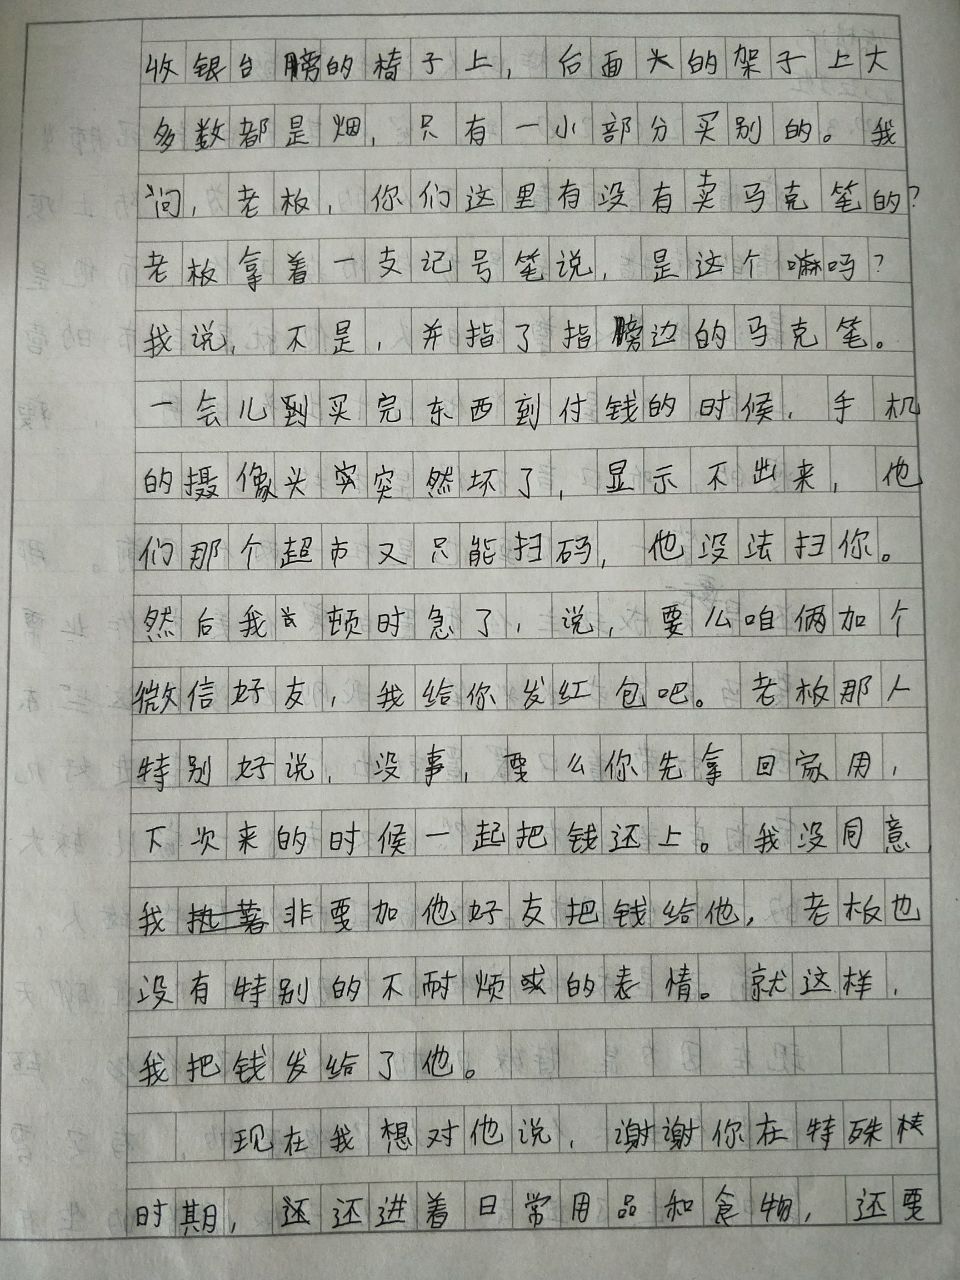 收银台膀的椅子上，后面头的架子上大
多数都是烟，只有一小部分买别的。我
问，老板，你们这里有没有卖马克笔的？
老板拿着一支记号笔说，是这个嘛吗？
我说，不是，并指了指膀边的马克笔。
一会儿到买完东西到付钱的时候，手机
的摄像头突突然坏了，显示不出来，他
们那个超市又只能扫码，他没法扫你。
然后我当顿时急了，说，要么咱俩加个
微信好友，我给你发红包吧。老板那人
特别好说，没事，要么你先拿回家用，
下次来的时候一起把钱还上。我没同意
我非要加他好友把钱给他，老板也
没有特别的不耐烦或的表情。就这样，
我把钱发给了他。
现在我想对他说，谢谢你在特殊
时期，还还进着日常用品和食物，还要